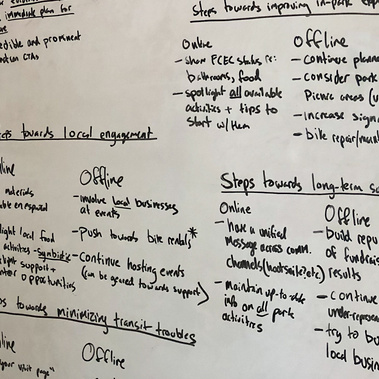 immediate plan for
edible and prominent
Steps towards improving in-park exp
Online
- show PCEC status re:
bathrooms, food
- spotlight all available
activities + tips to
start w/ them
Offline
- continue planne
- consider park
picnic areas (u
- increase signa
- bike repair/maint
eps towards local engagement
line
materials
Offline
- involve local businesses
at events
light local food
activities - symbiotic
support +
opportunities
- Push towards bike rentals*
- Continue hosting events
(can be geared towards support)
Steps towards long-term s
Online
- have a unified
message across comm.
channels
- maintain up-to-date
info on all park
activities
Offline
- build repu
of fundrais
results
- continue
under-repres
- try to bu
local busin
ps towards minimizing transit troubles
line
your visit page"
Offline